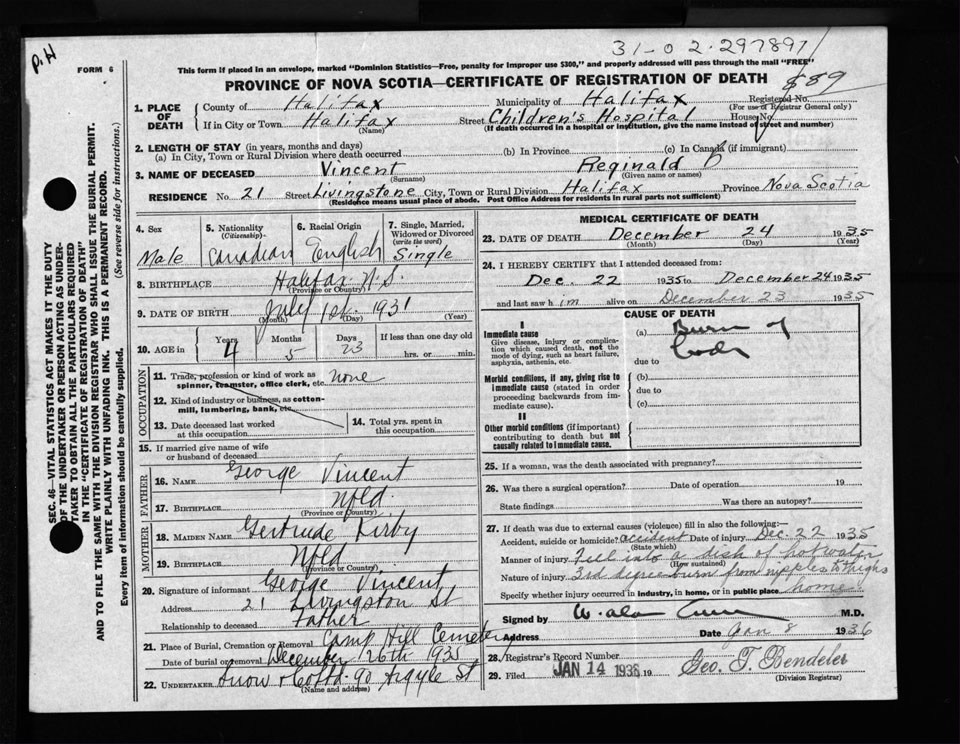 P.H
31-02-297897
FORM 6
This form if placed in an envelope, marked "Dominion Statistics—Free, penalty for improper use $300," and properly addressed will pass through the mail "FREE"
PROVINCE OF NOVA SCOTIA—CERTIFICATE OF REGISTRATION OF DEATH
889
SEC. 46—VITAL STATISTICS ACT MAKES IT THE DUTY
OF THE UNDERTAKER OR PERSON ACTING AS UNDER-
TAKER TO OBTAIN ALL THE PARTICULARS REQUIRED
IN THE "CERTIFICATE OF REGISTRATION OF DEATH"
AND TO FILE THE SAME WITH THE DIVISION REGISTRAR WHO SHALL ISSUE THE BURIAL PERMIT.
WRITE PLAINLY WITH UNFADING INK. THIS IS A PERMANENT RECORD.
Every item of information should be carefully supplied. (See reverse side for instructions.)
1. PLACE OF DEATH County of Halifax Municipality of Halifax Registered No.
(For use of Registrar General only)
If in City or Town Halifax Street Children's Hospital House No.
(Name) (If death occurred in a hospital or institution, give the name instead of street and number)
2. LENGTH OF STAY (in years, months and days)
(a) In City, Town or Rural Division where death occurred (b) In Province (c) In Canada (if immigrant)
3. NAME OF DECEASED Vincent Reginald
(Surname) (Given name or names)
RESIDENCE No. 21 Street Livingstone City, Town or Rural Division Halifax Province Nova Scotia
(Residence means usual place of abode. Post Office Address for residents in rural parts not sufficient)
4. Sex 5. Nationality (Citizenship) 6. Racial Origin 7. Single, Married, Widowed or Divorced (write the word)
Male Canadian English Single
8. BIRTHPLACE Halifax N.S.
(Province or Country)
9. DATE OF BIRTH July 1st 1931
(Month) (Day) (Year)
10. AGE in Years 4 Months 5 Days 23 If less than one day old
hrs. or min.
OCCUPATION
11. Trade, profession or kind of work as
spinner, teamster, office clerk, etc. None
12. Kind of industry or business, as cotton-
mill, lumbering, bank, etc.
13. Date deceased last worked
at this occupation
14. Total yrs. spent in
this occupation
15. If married give name of wife
or husband of deceased
FATHER
16. NAME George Vincent
17. BIRTHPLACE Nfld.
(Province or Country)
MOTHER
18. MAIDEN NAME Gertrude Kirby
19. BIRTHPLACE Nfld
(Province or Country)
20. Signature of informant George Vincent
Address 21 Livingston St
Relationship to deceased Father
21. Place of Burial, Cremation or Removal Camp Hill Cemetery
Date of burial or removal December 26th 1935
22. UNDERTAKER Snow & Co Ltd. 90 Argyle St
(Name and address)
MEDICAL CERTIFICATE OF DEATH
23. DATE OF DEATH December 24 1935
(Month) (Day) (Year)
24. I HEREBY CERTIFY that I attended deceased from:
Dec. 22 1935 to December 24 1935
and last saw him alive on December 23 1935
CAUSE OF DEATH
I
Immediate cause
Give disease, injury or complica-
tion which caused death, not the
mode of dying, such as heart failure,
asphyxia, asthenia, etc.
(a) Burn of
due to
Morbid conditions, if any, giving rise to
immediate cause (stated in order
proceeding backwards from im-
mediate cause).
(b)
due to
(c)
II
Other morbid conditions (if important)
contributing to death but not
causally related to immediate cause.
25. If a woman, was the death associated with pregnancy?
26. Was there a surgical operation? Date of operation 19
State findings Was there an autopsy?
27. If death was due to external causes (violence) fill in also the following:—
Accident, suicide or homicide? accident Date of injury Dec. 22 1935
(State which)
Manner of injury Fell into a dish of hot water
(How sustained)
Nature of injury 3rd degree burn from nipples to thighs
Specify whether injury occurred in industry, in home, or in public place home
Signed by M.D.
Address Date Jan 8 1936
28. Registrar's Record Number
29. Filed JAN 14 1936 19 Geo. T. Bendeler
(Division Registrar)